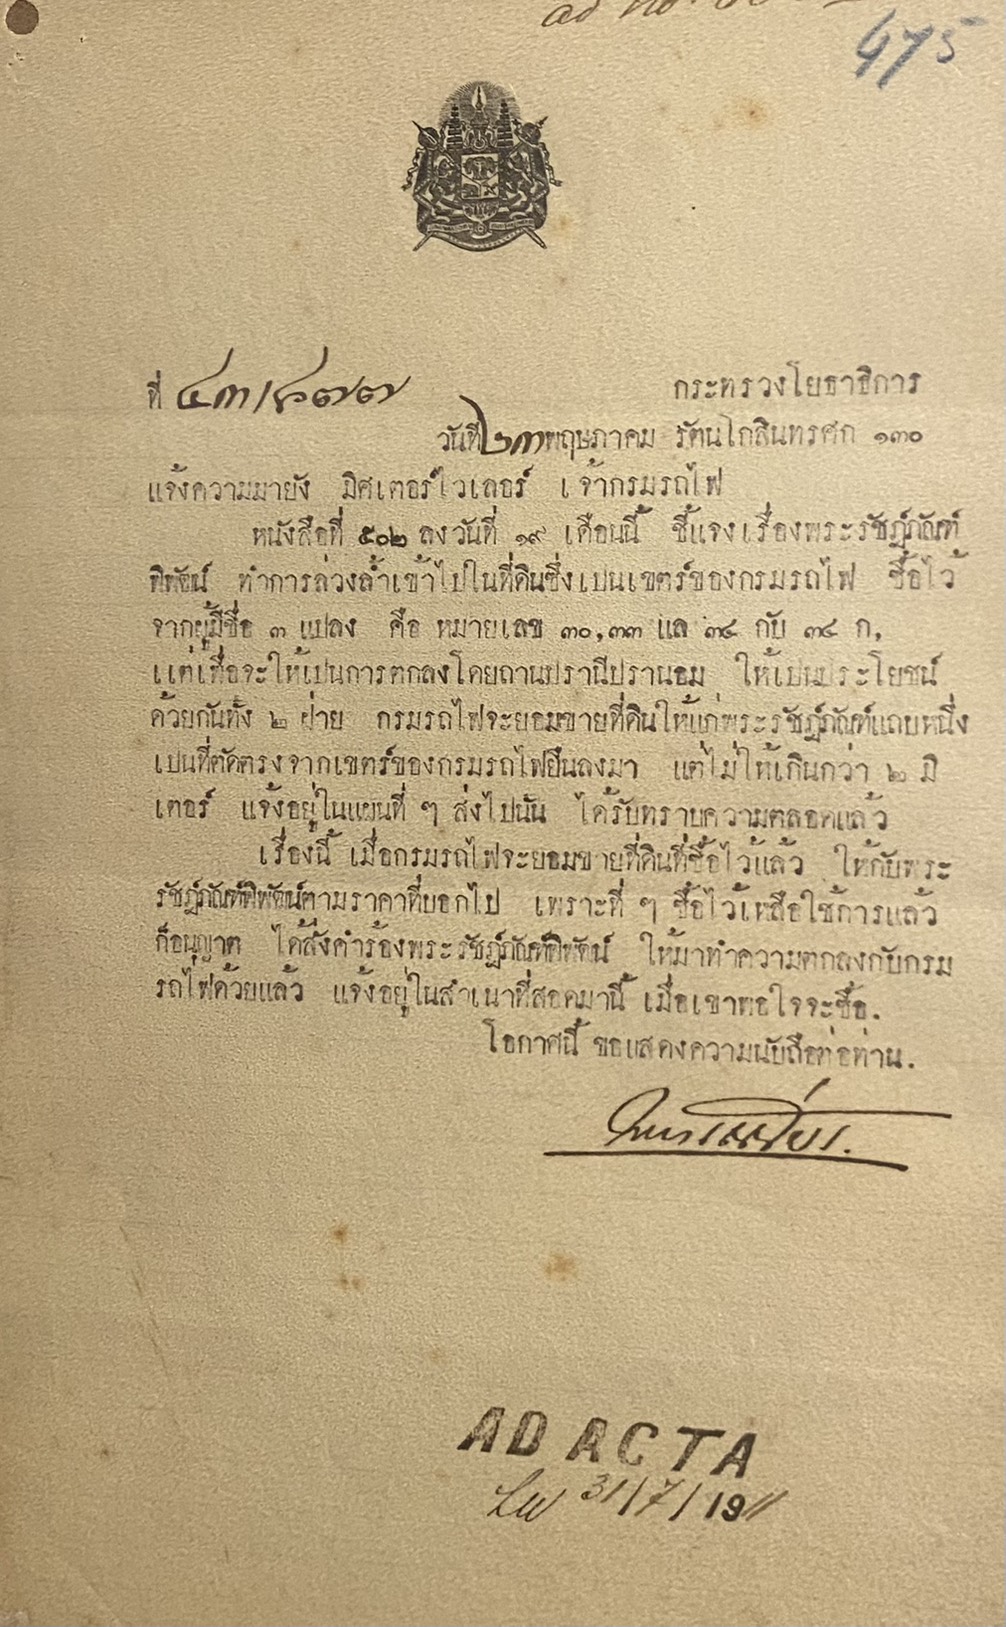 ad no.
475
ที่ ๔๓/๔๗๗
กระทรวงโยธาธิการ
วันที่ ๒๓ พฤษภาคม รัตนโกสินทรศก ๑๓๐
แจ้งความมายัง มิศเตอร์ไวเลอร์ เจ้ากรมรถไฟ
หนังสือที่ ๕๐๒ ลงวันที่ ๑๙ เดือนนี้ ชี้แจงเรื่องพระรัชฎ์ภัณฑ์
พิพัฒน์ ทำการล่วงล้ำเข้าไปในที่ดินซึ่งเปนเขตร์ของกรมรถไฟ ซื้อไว้
จากผู้มีชื่อ ๓ แปลง คือ หมายเลข ๓๐,๓๓ แล ๓๔ กับ ๓๔ ก,
แต่เพื่อจะให้เปนการตกลงโดยถานปรานีปรานอม ให้เปนประโยชน์
ด้วยกันทั้ง ๒ ฝ่าย กรมรถไฟจะยอมขายที่ดินให้แก่พระรัชฎ์ภัณฑ์แถบหนึ่ง
เปนที่ตัดตรงจากเขตร์ของกรมรถไฟยืนลงมา แต่ไม่ให้เกินกว่า ๒ มิ
เตอร์ แจ้งอยู่ในแผนที่ ๆ ส่งไปนั้น ได้รับทราบความตลอดแล้ว
เรื่องนี้ เมื่อกรมรถไฟจะยอมขายที่ดินที่ซื้อไว้แล้ว ให้กับพระ
รัชฎ์ภัณฑ์พิพัฒน์ตามราคาที่บอกไป เพราะที่ ๆ ซื้อไว้เหลือใช้การแล้ว
ก็อนุญาต ได้สั่งคำร้องพระรัชฎ์ภัณฑ์พิพัฒน์ ให้มาทำความตกลงกับกรม
รถไฟด้วยแล้ว แจ้งอยู่ในสำเนาที่สอดมานี้ เมื่อเขาพอใจจะซื้อ.
โอกาศนี้ ขอแสดงความนับถือต่อท่าน.
AD ACTA
31/7/1911